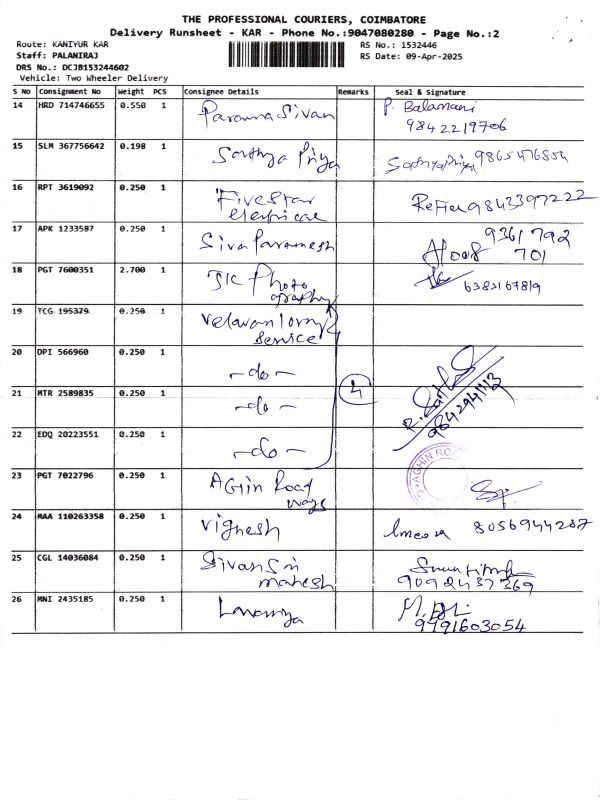 THE PROFESSIONAL COURIERS, COIMBATORE
Delivery Runsheet - KAR - Phone No.:9047080280 - Page No.:2
Route: KANIYUR KAR
RS No.: 1532446
Staff: PALANIRAJ
RS Date: 09-Apr-2025
DRS No.: DCJB153244602
Vehicle: Two Wheeler Delivery
S No Consignment No Weight PCS Consignee Details Remarks Seal & Signature
14 HRD 714746655 0.550 1 Parama Sivan P. Balamani
9842219706
15 SLM 367756642 0.198 1 Sathya Priya Sathyapriya 9865476854
16 RPT 3619092 0.250 1 Five Star 9843397222
elecrical
17 APK 1233587 0.250 1 Siva Paramesh 9361 792
701
18 PGT 7600351 2.700 1 JK Photo
graphy 6382167819
19 TCG 195379 0.250 1 Velavan lorry
Service
20 DPI 566960 0.250 1 -do-
21 MTR 2589835 0.250 1 -do- 4
9842941113
22 EDQ 20223551 0.250 1 -do-
AGHIN RO
23 PGT 7022796 0.250 1 AGhin Road
ways
24 MAA 110263358 0.250 1 Vignesh 8056944287
25 CGL 14036084 0.250 1 Sivan Sri
mahesh 9092437369
26 MNI 2435185 0.250 1 Lavanya
9791603054